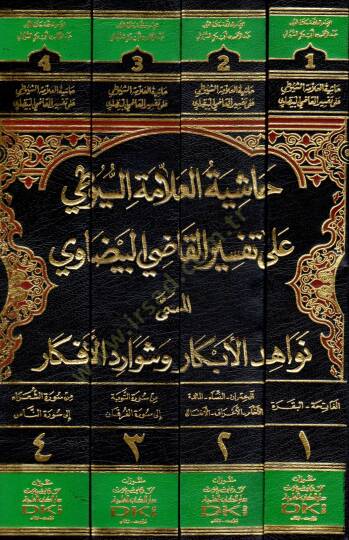 4
3
2
1
حاشية العلامة السيوطي
على تفسير القاضي البيضاوي
حاشية العلامة السيوطي
على تفسير القاضي البيضاوي
حاشية العلامة السيوطي
على تفسير القاضي البيضاوي
حاشية العلامة السيوطي
على تفسير القاضي البيضاوي
حاشية العلامة السيوطي
على تفسير القاضي البيضاوي
المسمى
نواهد الأبكار وشوارد الأفكار
الفاتحة - البقرة
آل عمران - النساء - المائدة
الأنعام - الأعراف - الأنفال
من سورة التوبة
إلى سورة الفرقان
من سورة الشعراء
إلى سورة الناس
١
٢
٣
٤
DKi
DKi
DKi
DKi